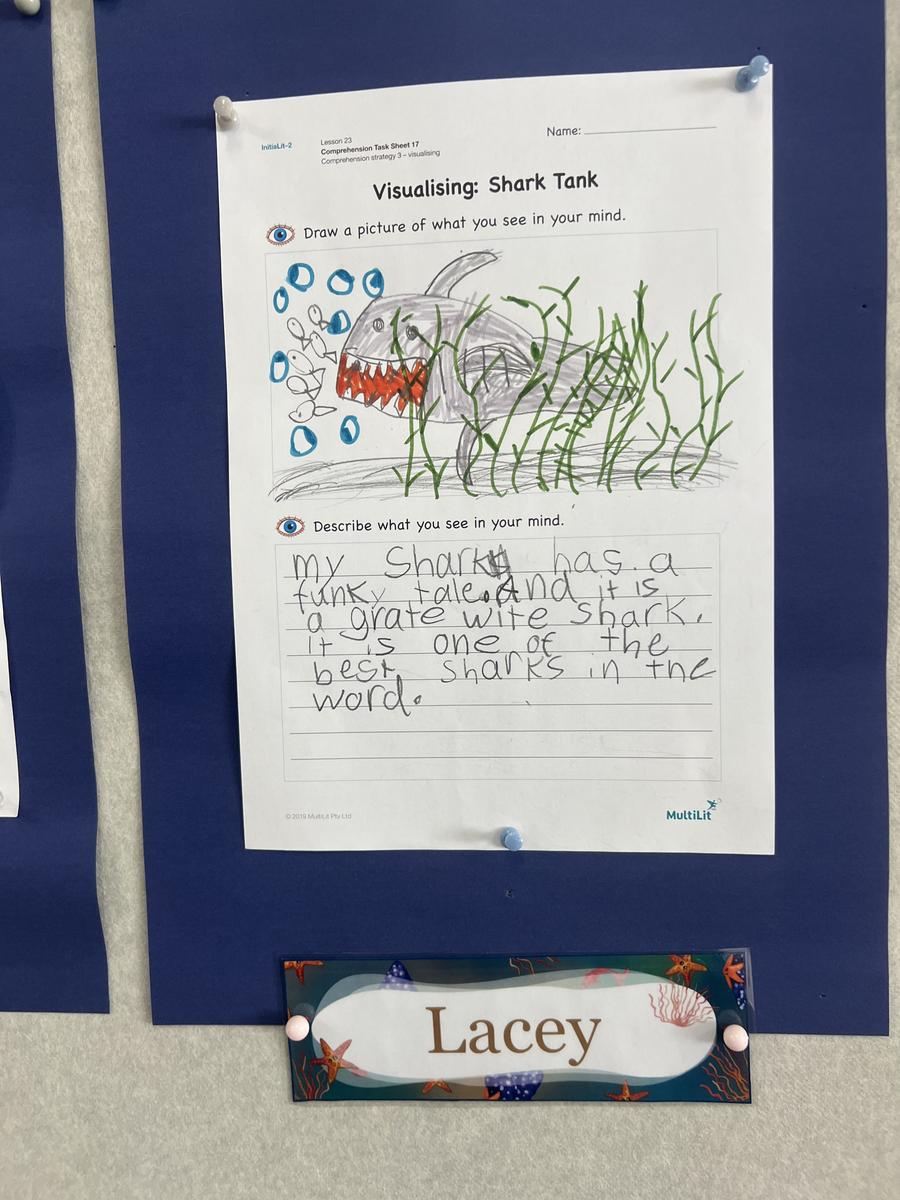 InitiaLit-2
Lesson 23
Comprehension Task Sheet 17
Comprehension strategy 3 – visualising
Name:
Visualising: Shark Tank
Draw a picture of what you see in your mind.
Describe what you see in your mind.
my Shark has a
funky tale. And it is
a grate wite Shark.
it is one of the
best sharks in the
word.
© 2019 MultiLit Pty Ltd
MultiLit
Lacey